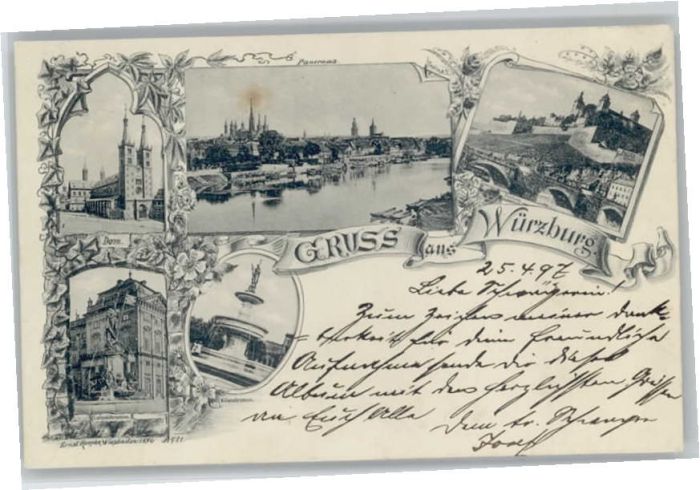 Panorama
Dom.
GRUSS aus Würzburg.
25.4.97
Liebe Schwägerin!
Zum Zeigen meiner Dank-
=barkeit für dein freundliche
Aufnahme sende dir dieses
Album mit den herzlichsten Grüssen
an Euch Alle
Dein tr. Schwager
Josef
Kiliansbrunnen.
Wiesbaden 1896